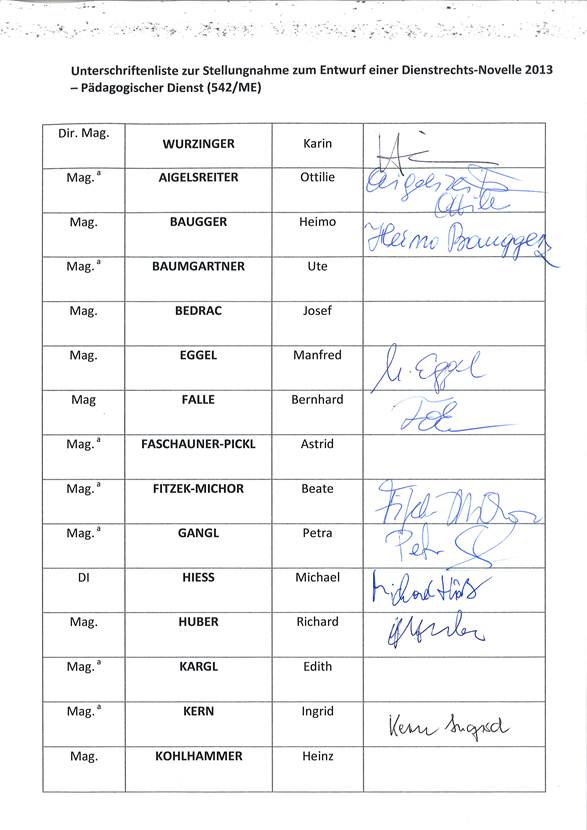 Unterschriftenliste zur Stellungnahme zum Entwurf einer Dienstrechts-Novelle 2013
– Pädagogischer Dienst (542/ME)
Dir. Mag. WURZINGER Karin
Mag.ª AIGELSREITER Ottilie Aigelsreiter
Ottilie
Mag. BAUGGER Heimo Heimo Baugger
Mag.ª BAUMGARTNER Ute
Mag. BEDRAC Josef
Mag. EGGEL Manfred M. Eggel
Mag FALLE Bernhard
Mag.ª FASCHAUNER-PICKL Astrid
Mag.ª FITZEK-MICHOR Beate
Mag.ª GANGL Petra Petra
DI HIESS Michael Michael Hieß
Mag. HUBER Richard
Mag.ª KARGL Edith
Mag.ª KERN Ingrid Kern Ingrid
Mag. KOHLHAMMER Heinz